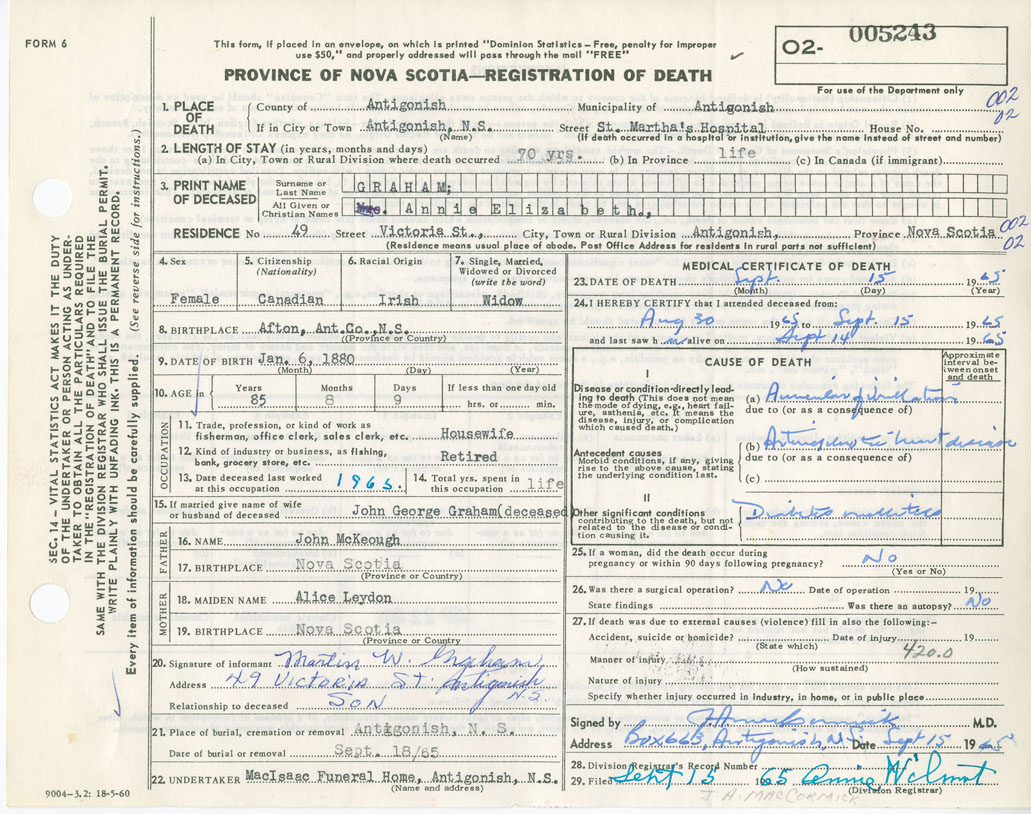 FORM 6
This form, if placed in an envelope, on which is printed "Dominion Statistics – Free, penalty for improper
use $50," and properly addressed will pass through the mail "FREE"
O2- 005243
For use of the Department only
PROVINCE OF NOVA SCOTIA—REGISTRATION OF DEATH
002
02
1. PLACE OF DEATH
County of Antigonish Municipality of Antigonish
If in City or Town Antigonish, N.S. Street St. Martha's Hospital House No.
(Name) (If death occurred in a hospital or institution, give the name instead of street and number)
2. LENGTH OF STAY (in years, months and days)
(a) In City, Town or Rural Division where death occurred 70 yrs. (b) In Province life (c) In Canada (if immigrant)
3. PRINT NAME OF DECEASED
Surname or Last Name GRAHAM;
All Given or Christian Names Mrs. Annie Elizabeth.,
RESIDENCE No 49 Street Victoria St., City, Town or Rural Division Antigonish, Province Nova Scotia
002
02
(Residence means usual place of abode. Post Office Address for residents in rural parts not sufficient)
4. Sex Female
5. Citizenship (Nationality) Canadian
6. Racial Origin Irish
7. Single, Married, Widowed or Divorced (write the word) Widow
8. BIRTHPLACE Afton, Ant.Co.,N.S.
(Province or Country)
9. DATE OF BIRTH Jan. 6, 1880
(Month) (Day) (Year)
10. AGE in Years 85 Months 8 Days 9 If less than one day old hrs. or min.
OCCUPATION
11. Trade, profession, or kind of work as
fisherman, office clerk, sales clerk, etc. Housewife
12. Kind of industry or business, as fishing,
bank, grocery store, etc. Retired
13. Date deceased last worked at this occupation 1965. 14. Total yrs. spent in this occupation life
15. If married give name of wife
or husband of deceased John George Graham(deceased)
FATHER
16. NAME John McKeough
17. BIRTHPLACE Nova Scotia
(Province or Country)
MOTHER
18. MAIDEN NAME Alice Leydon
19. BIRTHPLACE Nova Scotia
(Province or Country)
20. Signature of informant Martin W.
Address 49 Victoria St. Antigonish N.S.
Relationship to deceased SON
21. Place of burial, cremation or removal Antigonish, N. S.
Date of burial or removal Sept. 18/65
22. UNDERTAKER MacIsaac Funeral Home, Antigonish, N.S.
(Name and address)
MEDICAL CERTIFICATE OF DEATH
23. DATE OF DEATH Sept. 15 1965
(Month) (Day) (Year)
24. I HEREBY CERTIFY that I attended deceased from:
Aug 30 1965 to Sept. 15 1965
and last saw h alive on Sept 14 1965
CAUSE OF DEATH
Approximate interval between onset and death
I
Disease or condition directly leading to death (This does not mean the mode of dying, e.g., heart failure, asthenia, etc. It means the disease, injury, or complication which caused death.)
(a) Auricular fibrillation
due to (or as a consequence of)
Antecedent causes
Morbid conditions, if any, giving rise to the above cause, stating the underlying condition last.
(b) heart disease
due to (or as a consequence of)
(c)
II
Other significant conditions
contributing to the death, but not related to the disease or condition causing it.
Diabetes mellitus
25. If a woman, did the death occur during
pregnancy or within 90 days following pregnancy? No
(Yes or No)
26. Was there a surgical operation? No Date of operation 19
State findings Was there an autopsy? No
27. If death was due to external causes (violence) fill in also the following:–
Accident, suicide or homicide? Date of injury 19
(State which) 420.0
Manner of injury
(How sustained)
Nature of injury
Specify whether injury occurred in industry, in home, or in public place
Signed by J.H. MacCormick M.D.
Address Box 663, Antigonish, N.S. Date Sept 15 1965
28. Division Registrar's Record Number
29. Filed Sept 15 1965 Annie Wilmot
(Division Registrar)
J. H. MACCORMICK
9004–3.2: 18-5-60
SEC. 14 – VITAL STATISTICS ACT MAKES IT THE DUTY
OF THE UNDERTAKER OR PERSON ACTING AS UNDER-
TAKER TO OBTAIN ALL THE PARTICULARS REQUIRED
IN THE "REGISTRATION OF DEATH" AND TO FILE THE
SAME WITH THE DIVISION REGISTRAR WHO SHALL ISSUE THE BURIAL PERMIT.
WRITE PLAINLY WITH UNFADING INK. THIS IS A PERMANENT RECORD.
Every item of information should be carefully supplied. (See reverse side for instructions.)